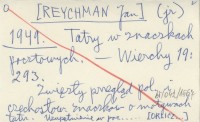 [REYCHMAN Jan] (jr)
1949. Tatry w znaczkach
pocztowych. — Wierchy 19:
293.
Zwięzły przegląd pol.
czechosłow. znaczków o motywach
tatr.